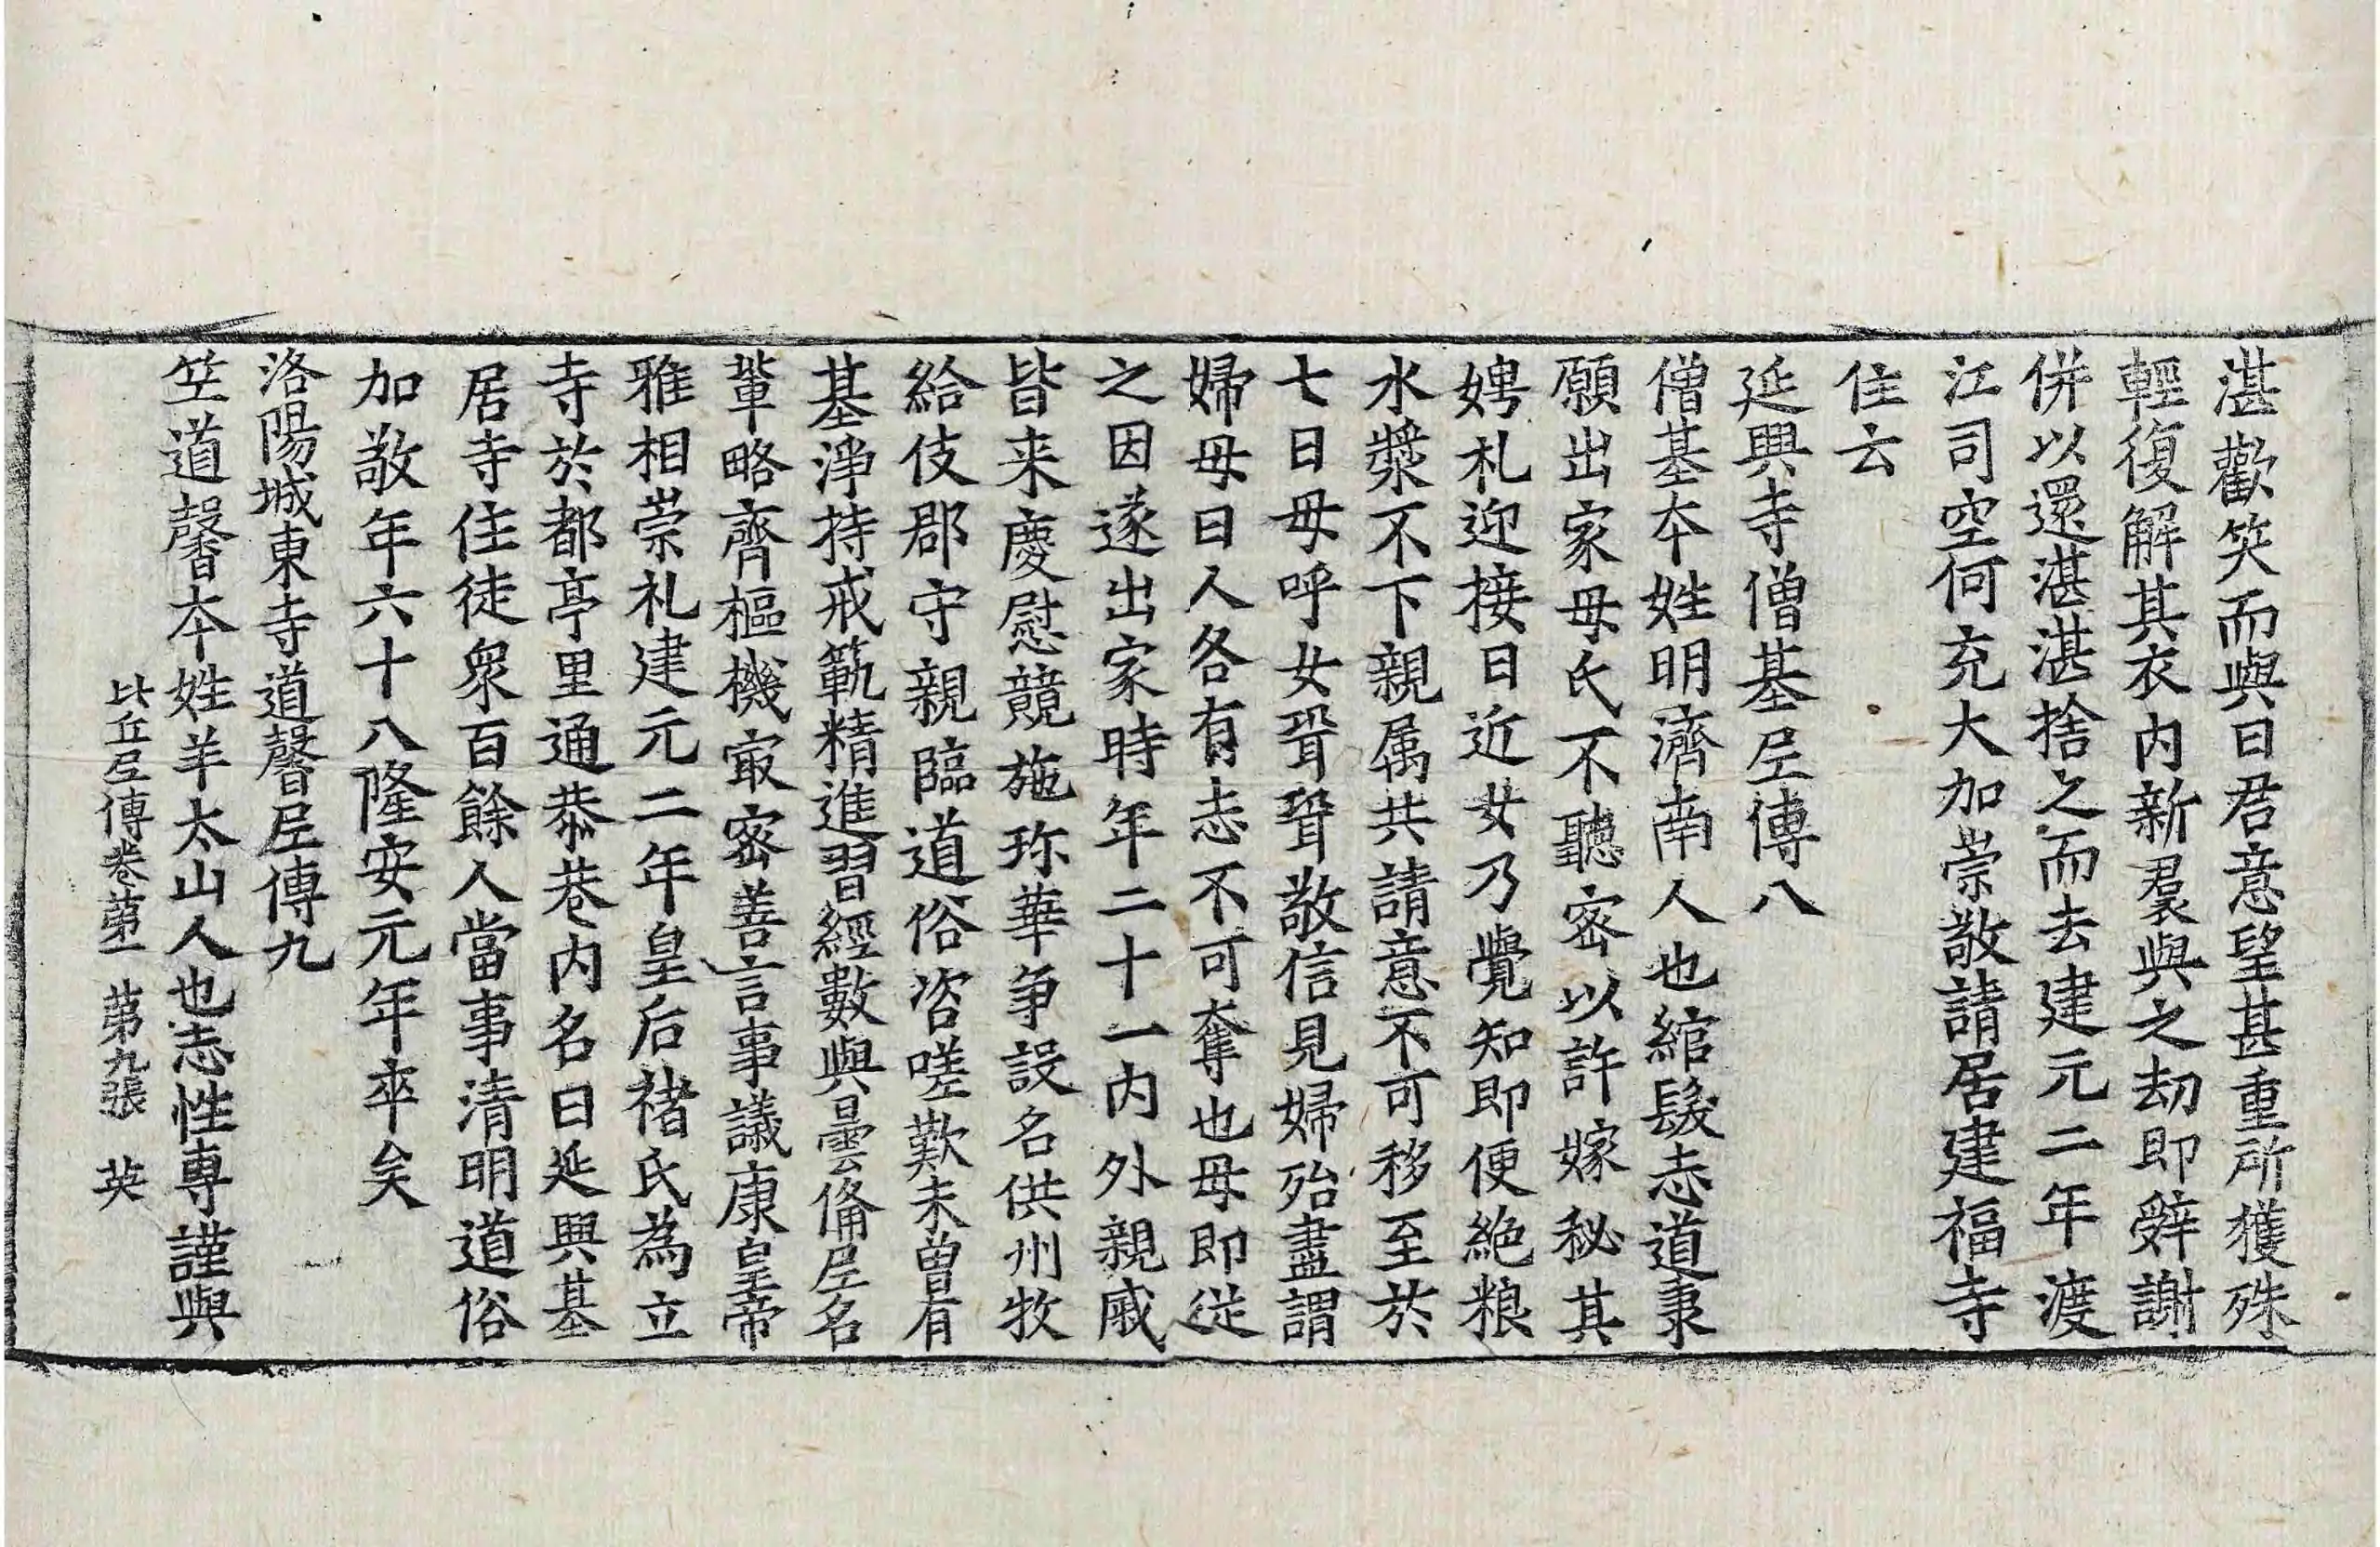 湛歡笑而與曰君意望甚重所獲殊
輕復解其衣內新裠與之劫即辤謝
併以還湛湛捨之而去建元二年渡
江司空何充大加崇敬請居建福寺
住云
延興寺僧基𡰱傳八
僧基夲姓明濟南人也綰髮志道秉
願出家母氏不聽密以許嫁秘其
娉札迎接日近女乃覺知即便絶粮
水漿不下親属共請意不可移至於
七日母呼女壻壻敬信見婦殆盡謂
婦母曰人各有志不可奪也母即從
之因遂出家時年二十一內外親戚
皆来慶慰競施珎華爭設名供州牧
給伎郡守親臨道俗咨嗟歎未曾有
基淨持戒範精進習經數與曇俻𡰱名
輩略齊樞機㝡密善言事議康皇帝
雅相崇礼建元二年皇后褚氏為立
寺於都亭里通恭巷內名曰延興基
居寺住徒衆百餘人當事清明道俗
加敬年六十八隆安元年卒矣
洛陽城東寺道馨𡰱傳九
竺道馨夲姓羊太山人也志性専謹與
比丘𡰱傳卷苐一 苐九張 英